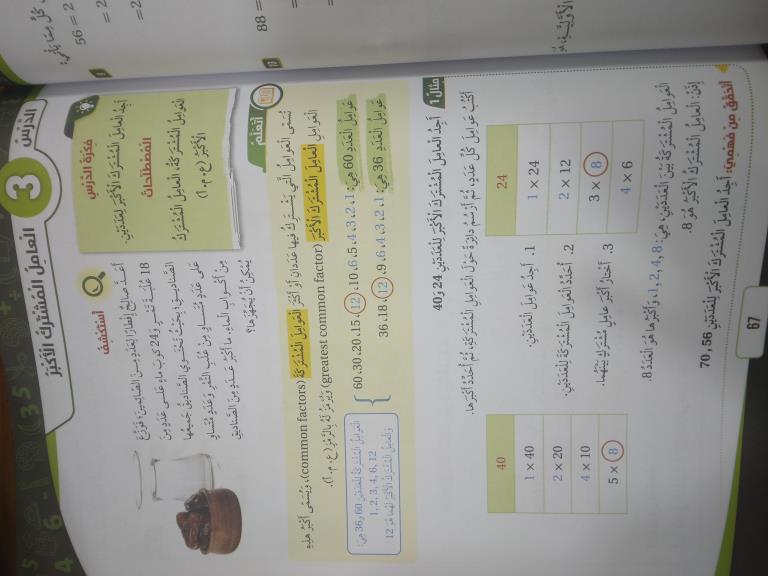 الدَّرْسُ
3
الْعامِلُ الْمُشْتَرَكُ الْأَكْبَرُ
فِكْرَةُ الدَّرْسِ
أَجِدُ الْعامِلَ الْمُشْتَرَكَ الْأَكْبَرَ لِعَدَدَيْنِ.
الْمُصْطَلَحاتُ
الْعَوامِلُ الْمُشْتَرَكَةُ، الْعامِلُ الْمُشْتَرَكُ
الْأَكْبَرُ (ع. م. أ)
أَسْتَكْشِفُ
أَعَدَّ صالِحٌ إِفْطارًا لِعَدَدٍ مِنَ الصّائِمينَ، فَوَزَّعَ
18 عُلْبَةَ تَمْرٍ، وَ 24 كوبَ ماءٍ عَلى عَدَدٍ مِنَ
الصَّناديقِ، بِحَيْثُ تَحْتَوي الصَّناديقُ جَميعُها
عَلى عَدَدٍ مُتَساوٍ مِنْ عُلَبِ التَّمْرِ وَعَدَدٍ مُتَساوٍ
مِنْ أَكْوابِ الْماءِ. ما أَكْبَرُ عَدَدٍ مِنَ الصَّناديقِ
يُمْكِنُ أَنْ يُجَهِّزَها؟
أَتَعَلَّمُ
تُسَمّى الْعَوامِلُ الَّتي يَشْتَرِكُ فيها عَدَدانِ أَوْ أَكْثَرُ الْعَوامِلَ الْمُشْتَرَكَةَ (common factors)، وَيُسَمّى أَكْبَرُ هذِهِ
الْعَوامِلِ الْعامِلَ الْمُشْتَرَكَ الْأَكْبَرَ (greatest common factor) وَيُرْمَزُ لَهُ بِالرَّمْزِ (ع. م. أ).
عَوامِلُ الْعَدَدِ 60 هِيَ: 1، 2، 3، 4، 5، 6، 10، 12، 15، 20، 30، 60
عَوامِلُ الْعَدَدِ 36 هِيَ: 1، 2، 3، 4، 6، 9، 12، 18، 36
الْعَوامِلُ الْمُشْتَرَكَةُ لِلْعَدَدَيْنِ 60 وَ 36 هِيَ:
1, 2, 3, 4, 6, 12
وَالْعامِلُ الْمُشْتَرَكُ الْأَكْبَرُ لَهُما هُوَ 12
مثال 1
أَجِدُ الْعامِلَ الْمُشْتَرَكَ الْأَكْبَرَ لِلْعَدَدَيْنِ 24 وَ 40
أَكْتُبُ عَوامِلَ كُلِّ عَدَدٍ، ثُمَّ أَرْسُمُ دائِرَةً حَوْلَ الْعَوامِلِ الْمُشْتَرَكَةِ، ثُمَّ أُحَدِّدُ أَكْبَرَها.
24
1 × 24
2 × 12
3 × 8
4 × 6
1. أَجِدُ عَوامِلَ الْعَدَدَيْنِ.
2. أُحَدِّدُ الْعَوامِلَ الْمُشْتَرَكَةَ لِلْعَدَدَيْنِ.
3. أَخْتارُ أَكْبَرَ عامِلٍ مُشْتَرَكٍ بَيْنَهُما.
40
1 × 40
2 × 20
4 × 10
5 × 8
الْعَوامِلُ الْمُشْتَرَكَةُ بَيْنَ الْعَدَدَيْنِ، هِيَ: 1, 2, 4, 8، وَأَكْبَرُها هُوَ الْعَدَدُ 8.
إِذَنْ: الْعامِلُ الْمُشْتَرَكُ الْأَكْبَرُ هُوَ 8.
أَتَحَقَّقُ مِنْ فَهْمي: أَجِدُ الْعامِلَ الْمُشْتَرَكَ الْأَكْبَرَ لِلْعَدَدَيْنِ 56، 70
67
56 = 2
= 2
=2
88 =
=
9
10